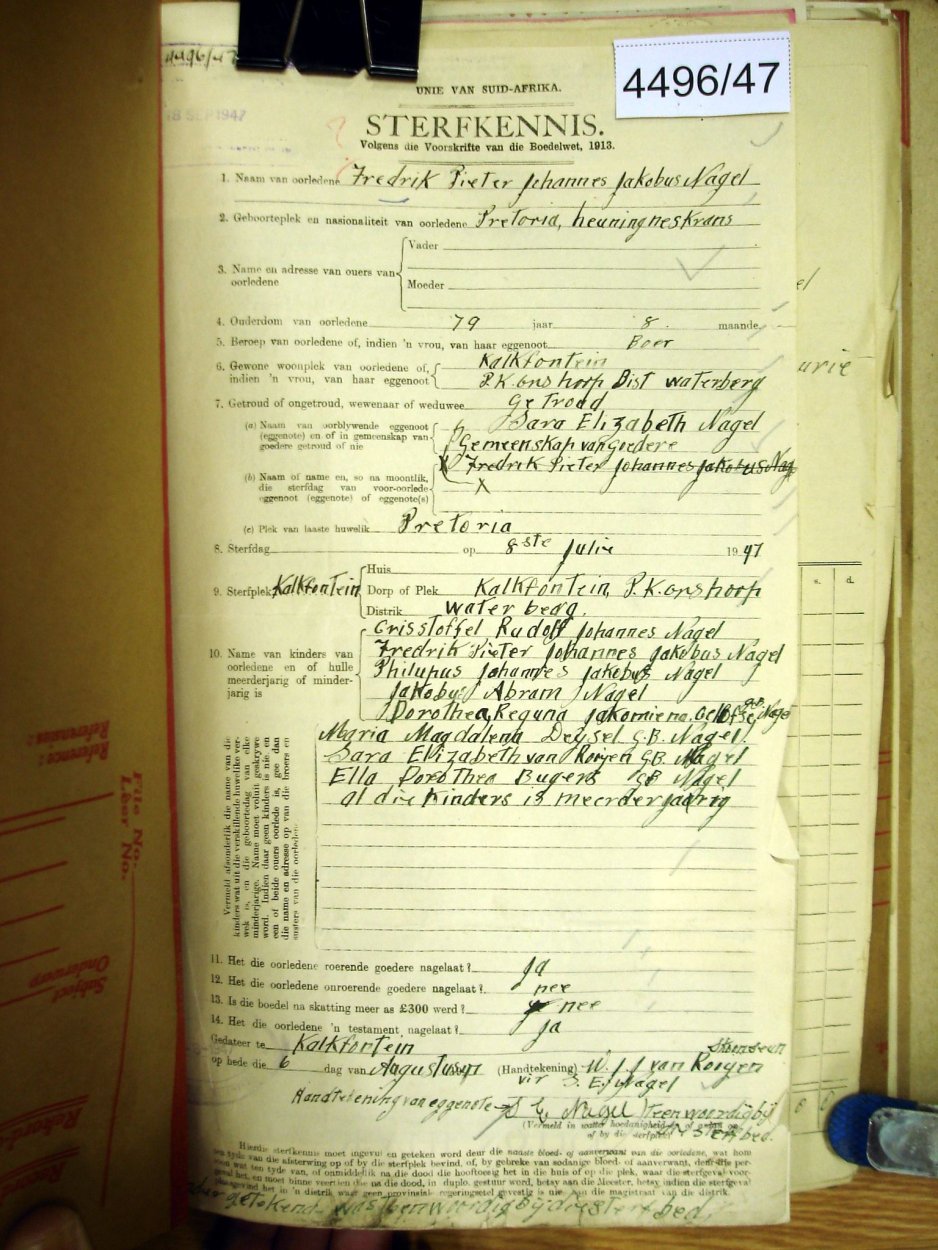 4496/47
4496/47
UNIE VAN SUID-AFRIKA.
18 SEP 1947
STERFKENNIS.
Volgens die Voorskrifte van die Boedelwet, 1913.
1. Naam van oorledene Fredrik Pieter Johannes Jakobus Nagel
2. Geboorteplek en nasionaliteit van oorledene Pretoria, heuningneskrans
3. Name en adresse van ouers van oorledene
Vader
Moeder
4. Ouderdom van oorledene 79 jaar 8. maande.
5. Beroep van oorledene of, indien 'n vrou, van haar eggenoot Boer
6. Gewone woonplek van oorledene of, Kalkfontein
indien 'n vrou, van haar eggenoot P.K. ons hoop Dist waterberg
7. Getroud of ongetroud, wewenaar of weduwee Getroud
(a) Naam van oorblywende eggenoot Sara Elizabeth Nagel
(eggenote) en of in gemeenskap van Gemeenskap van Goedere
goedere getroud of nie
Fredrik Pieter Johannes Jakobus Nag
(b) Naam of name en, so na moontlik,
die sterfdag van voor-oorlede X
eggenoot (eggenote) of eggenote(s)
(c) Plek van laaste huwelik Pretoria
8. Sterfdag op 8ste Julie 1947
9. Sterfplek Kalkfontein
Huis
Dorp of Plek Kalkfontein, P.K. ons hoop
Distrik water berg.
10. Name van kinders van
oorledene en of hulle
meerderjarig of minder-
jarig is
Crisstoffel Rudolf Johannes Nagel
Fredrik Pieter Johannes Jakobus Nagel
Philupus Johannes Jakobus Nagel
Jakobus Abram Nagel
Dorothea Reguna Jakomiena GB Nagel
Maria Magdalena Deysel G.B. Nagel.
Sara Elizabeth van Rooyen GB Nagel
Ella Dorothea Bugers GB Nagel
al die kinders is meerderjaarig
Vermeld afsonderlik die name van die
kinders wat uit die verskillende huwelike ver-
wek is, en die geboortedag van elke
minderjarige. Name moet voluit geskrywe
word. Indien daar geen kinders is nie en
een of beide ouers oorlede is, gee dan
die name en adresse op van die broers en
susters van die oorledene.
11. Het die oorledene roerende goedere nagelaat? Ja
12. Het die oorledene onroerende goedere nagelaat? nee
13. Is die boedel na skatting meer as £300 werd? nee
14. Het die oorledene 'n testament nagelaat? Ja
Gedateer te Kalkfontein
Skoonseun
op hede die 6 dag van Augustus (Handtekening) W. J. J van Rooyen
vir S. E. Nagel
Handtekening van eggenote S E Nagel Teenwoordig by
(Vermeld in watter hoedanigheid
of by die sterfplek) sterfbed.
Hierdie sterfkennis moet ingevul en geteken word deur die naaste bloed- of aanverwant van die oorledene, wat hom
ten tyde van die afsterwing op of by die sterfplek bevind, of, by gebreke van sodanige bloed- of aanverwant, deur die per-
soon wat ten tyde van, of onmiddellik na die dood die hooftoesig het in die huis of op die plek, waar die sterfgeval voor-
geval het, en moet binne veertien dae na die dood, in duplo, gestuur word, hetsy aan die Meester, hetsy, indien die sterfgeval
plaasgevind het in 'n distrik waar geen provinsiale regeringsetel gevestig is nie, aan die magistraat van die distrik.
getekend was teenwoordig by die sterf bed.
File No.
Lêer No.
Reference:
Referensie:
Subject
Onderwerp
s. d.